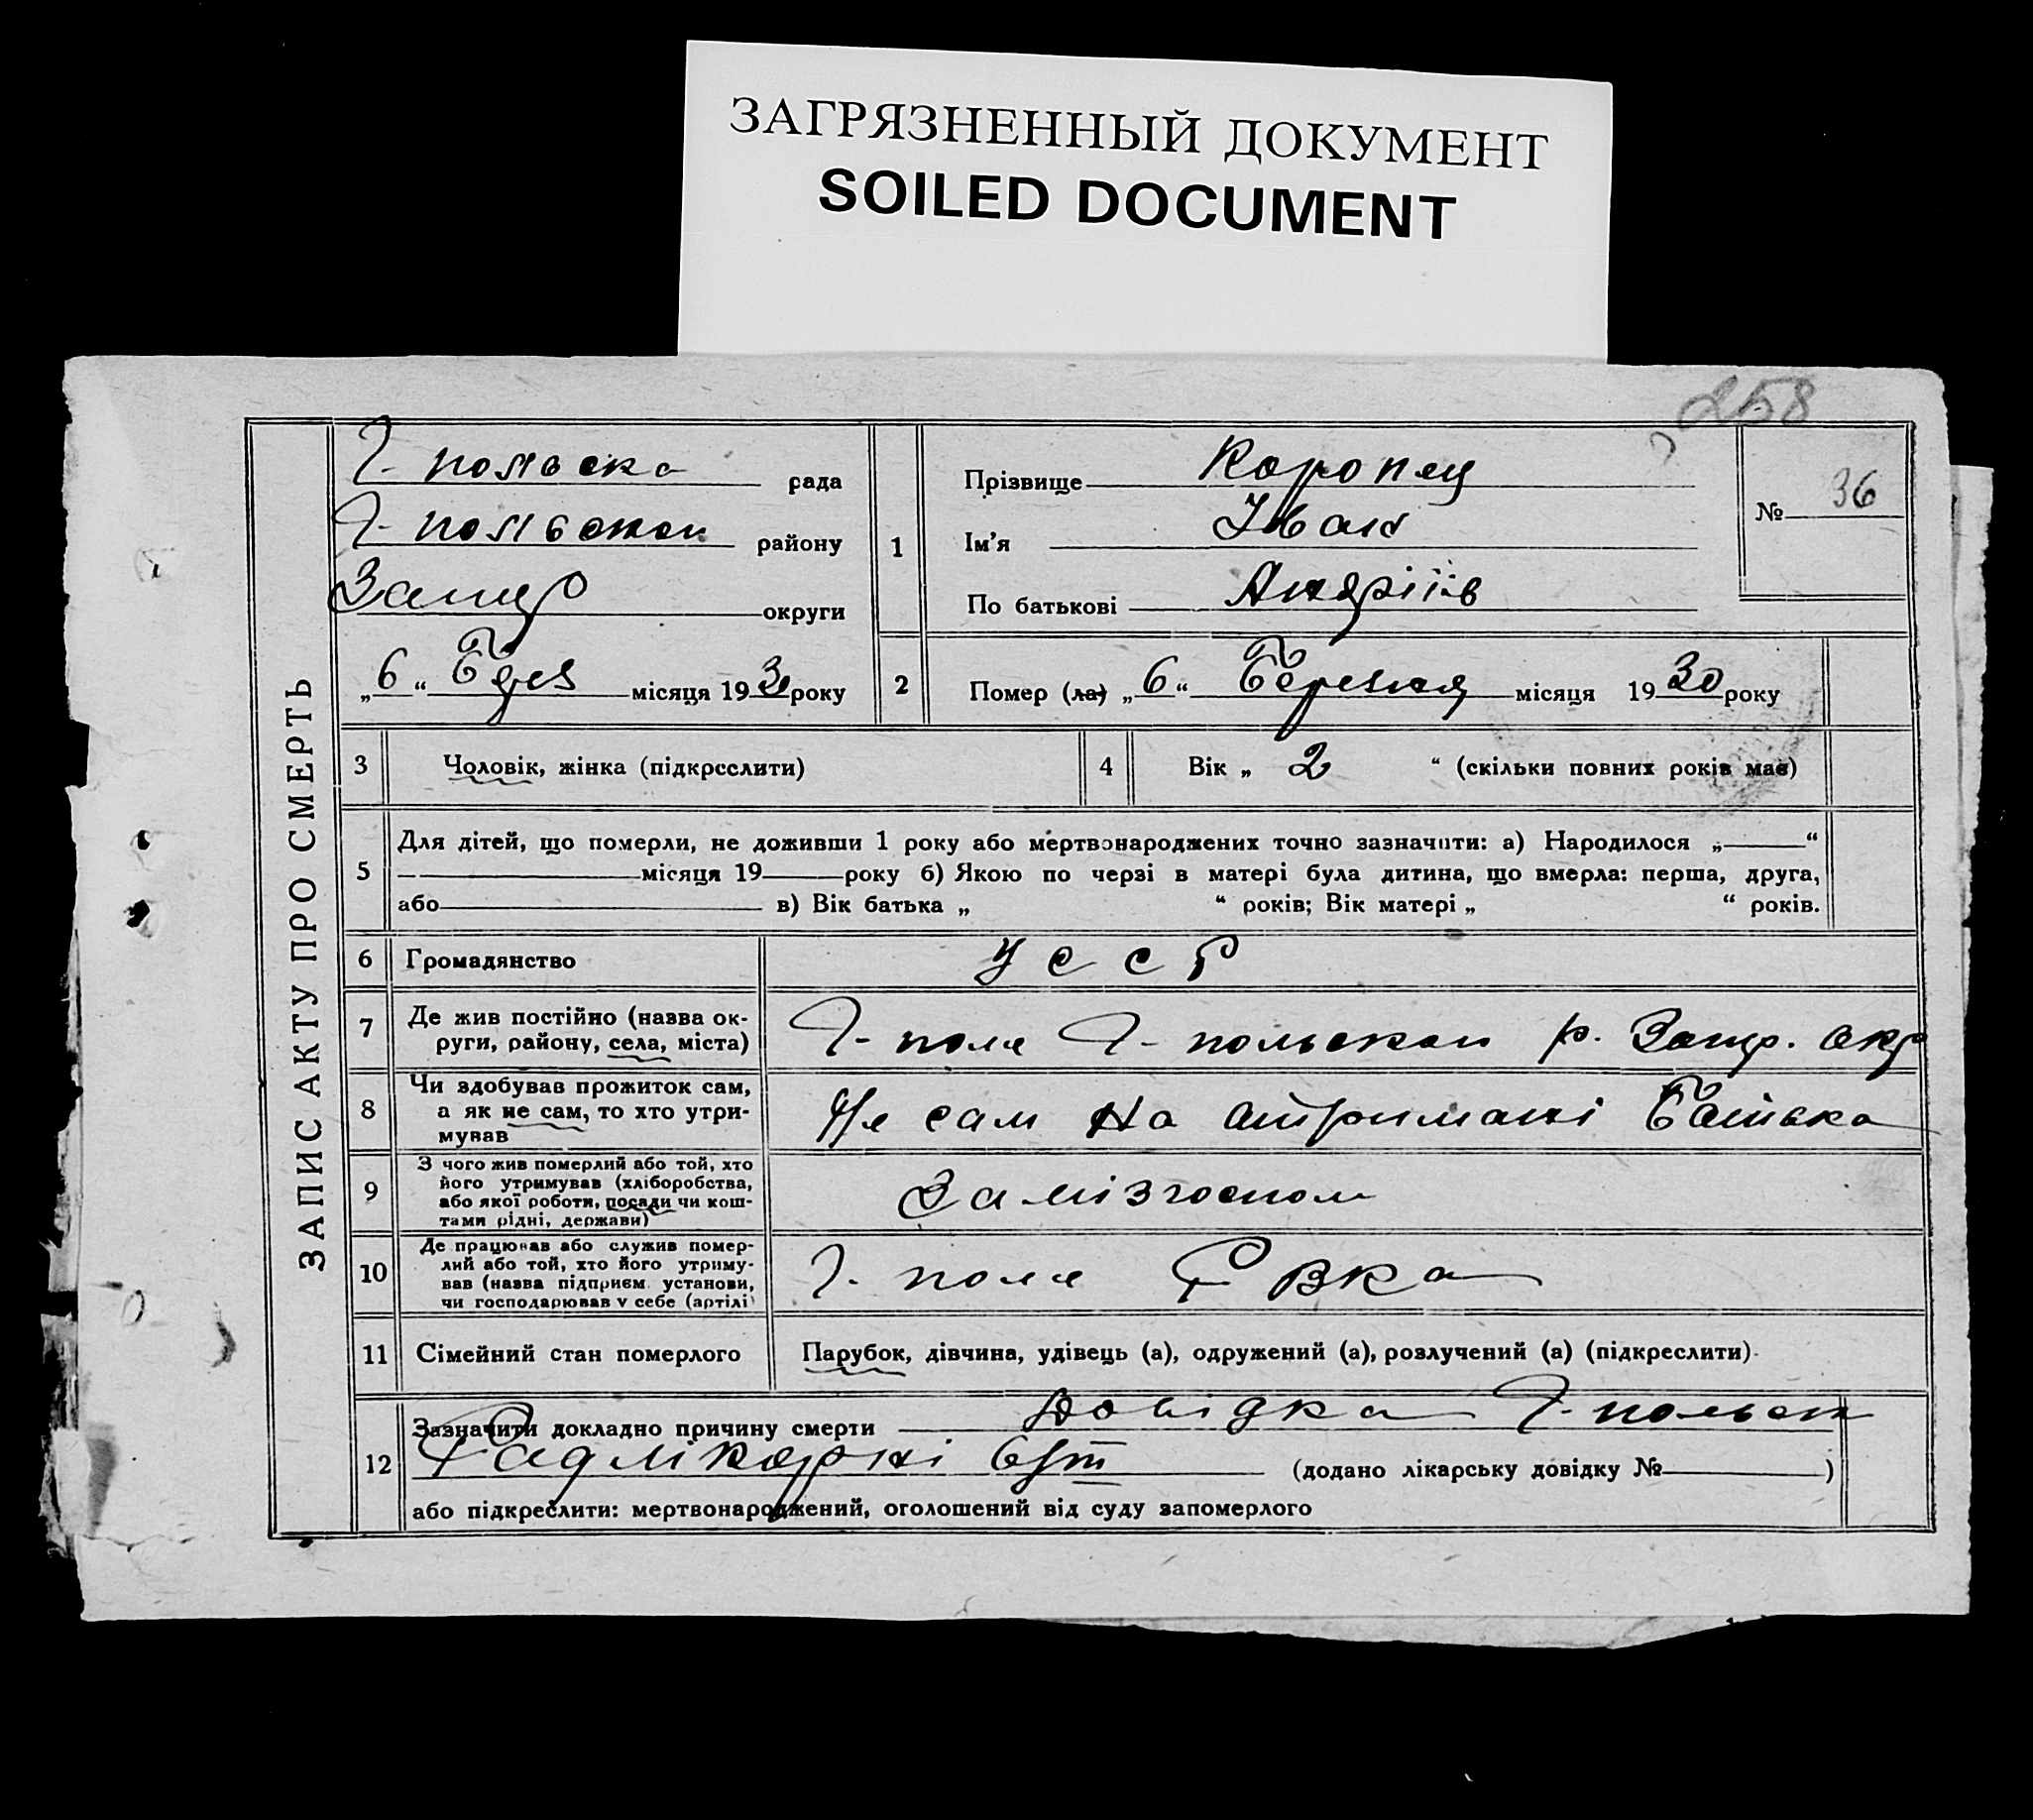 ЗАГРЯЗНЕННЫЙ ДОКУМЕНТ
SOILED DOCUMENT
258
ЗАПИС АКТУ ПРО СМЕРТЬ
Г-польска рада
Г-польского району
Запор округи
„6“ Берез місяця 1930 року
1
Прізвище Коропец
Ім'я Іван
По батькові Андріів
№ 36
2
Помер (ла) „6“ Березня місяця 1930 року
3 Чоловік, жінка (підкреслити)
4 Вік „ 2 “ (скільки повних років має)
5
Для дітей, що померли, не доживши 1 року або мертвонароджених точно зазначити: а) Народилося „ “
місяця 19 року б) Якою по черзі в матері була дитина, що вмерла: перша, друга,
або в) Вік батька „ “ років; Вік матері „ “ років.
6 Громадянство УССР
7 Де жив постійно (назва ок-
руги, району, села, міста)
Г-поле Г-польского р. Запор. окр
8 Чи здобував прожиток сам,
а як не сам, то хто утри-
мував
Не сам на утримані батька
9 З чого жив померлий або той, хто
його утримував (хліборобства,
або якої роботи, посади чи кош-
тами рідні, держави)
10 Де працював або служив помер-
лий або той, хто його утриму-
вав (назва підприєм. установи,
чи господарював у себе (артілі)
Г. поле
11 Сімейний стан померлого Парубок, дівчина, удівець (а), одружений (а), розлучений (а) (підкреслити)
12 Зазначити докладно причину смерти Довідка Г-польск
(додано лікарську довідку № )
або підкреслити: мертвонароджений, оголошений від суду запомерлого